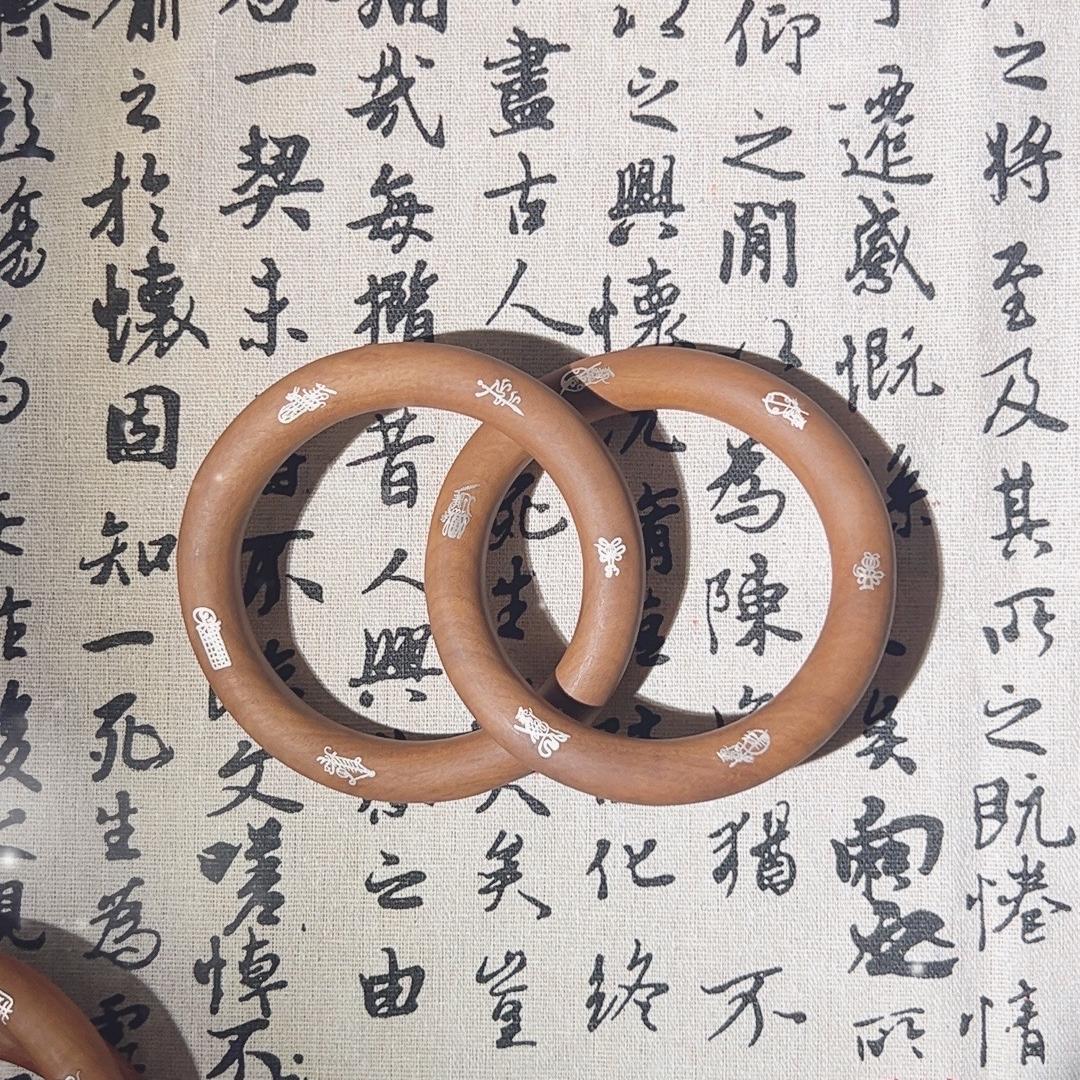 之將至及其所之既惓情
遷感慨係矣向之所
仰之閒以為陳猶不
以之興懷況脩化終
盡古人死生大矣豈
痛哉每攬昔人興感之由
一契未嘗不臨文嗟悼不
之於懷固知一死生為虛
彭殤為妄作後之視